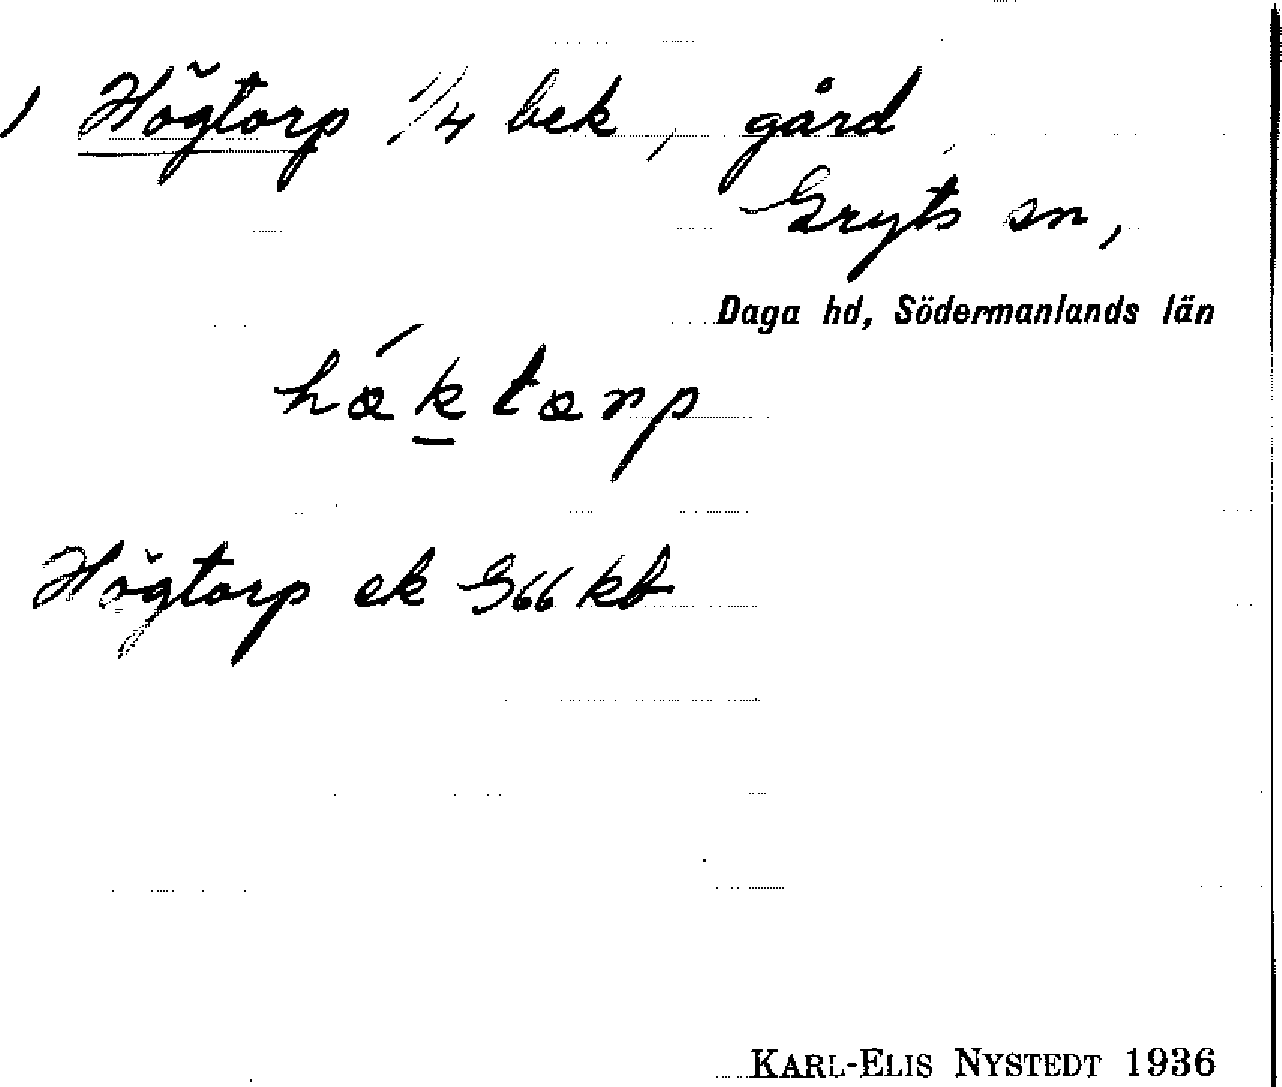 1 Högtorp 1/4 bek, gård
Gryts sn,
Daga hd, Södermanlands län
hǿktorp
Högtorp ek G66 kb
KARL-ELIS NYSTEDT 1936